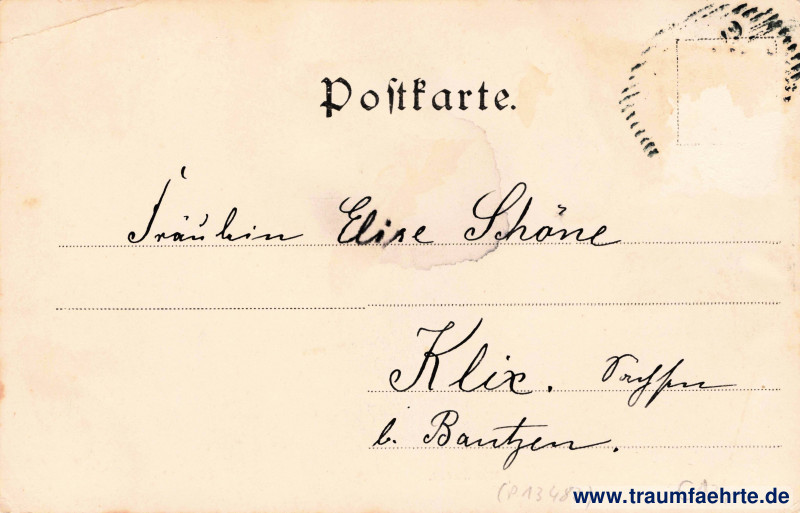 Postkarte.
Fräulein Elise Schöne
Klix. Sachsen
b. Bautzen.
www.traumfaehrte.de